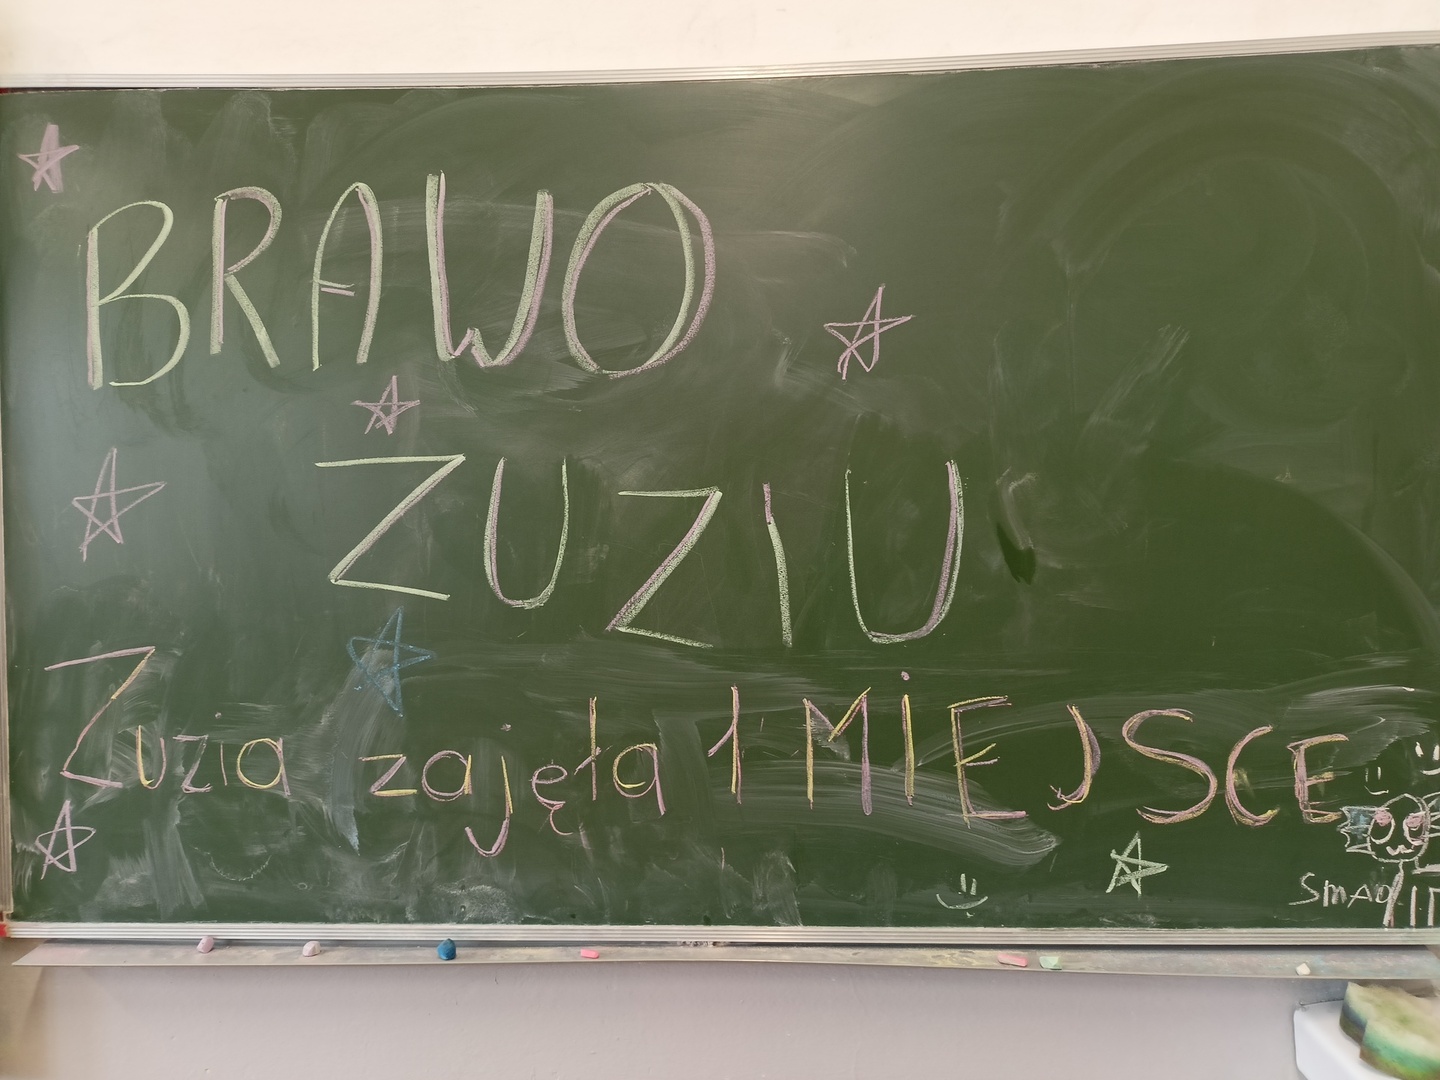 BRAWO
ZUZIU
Zuzia zajęła 1 MIEJSCE